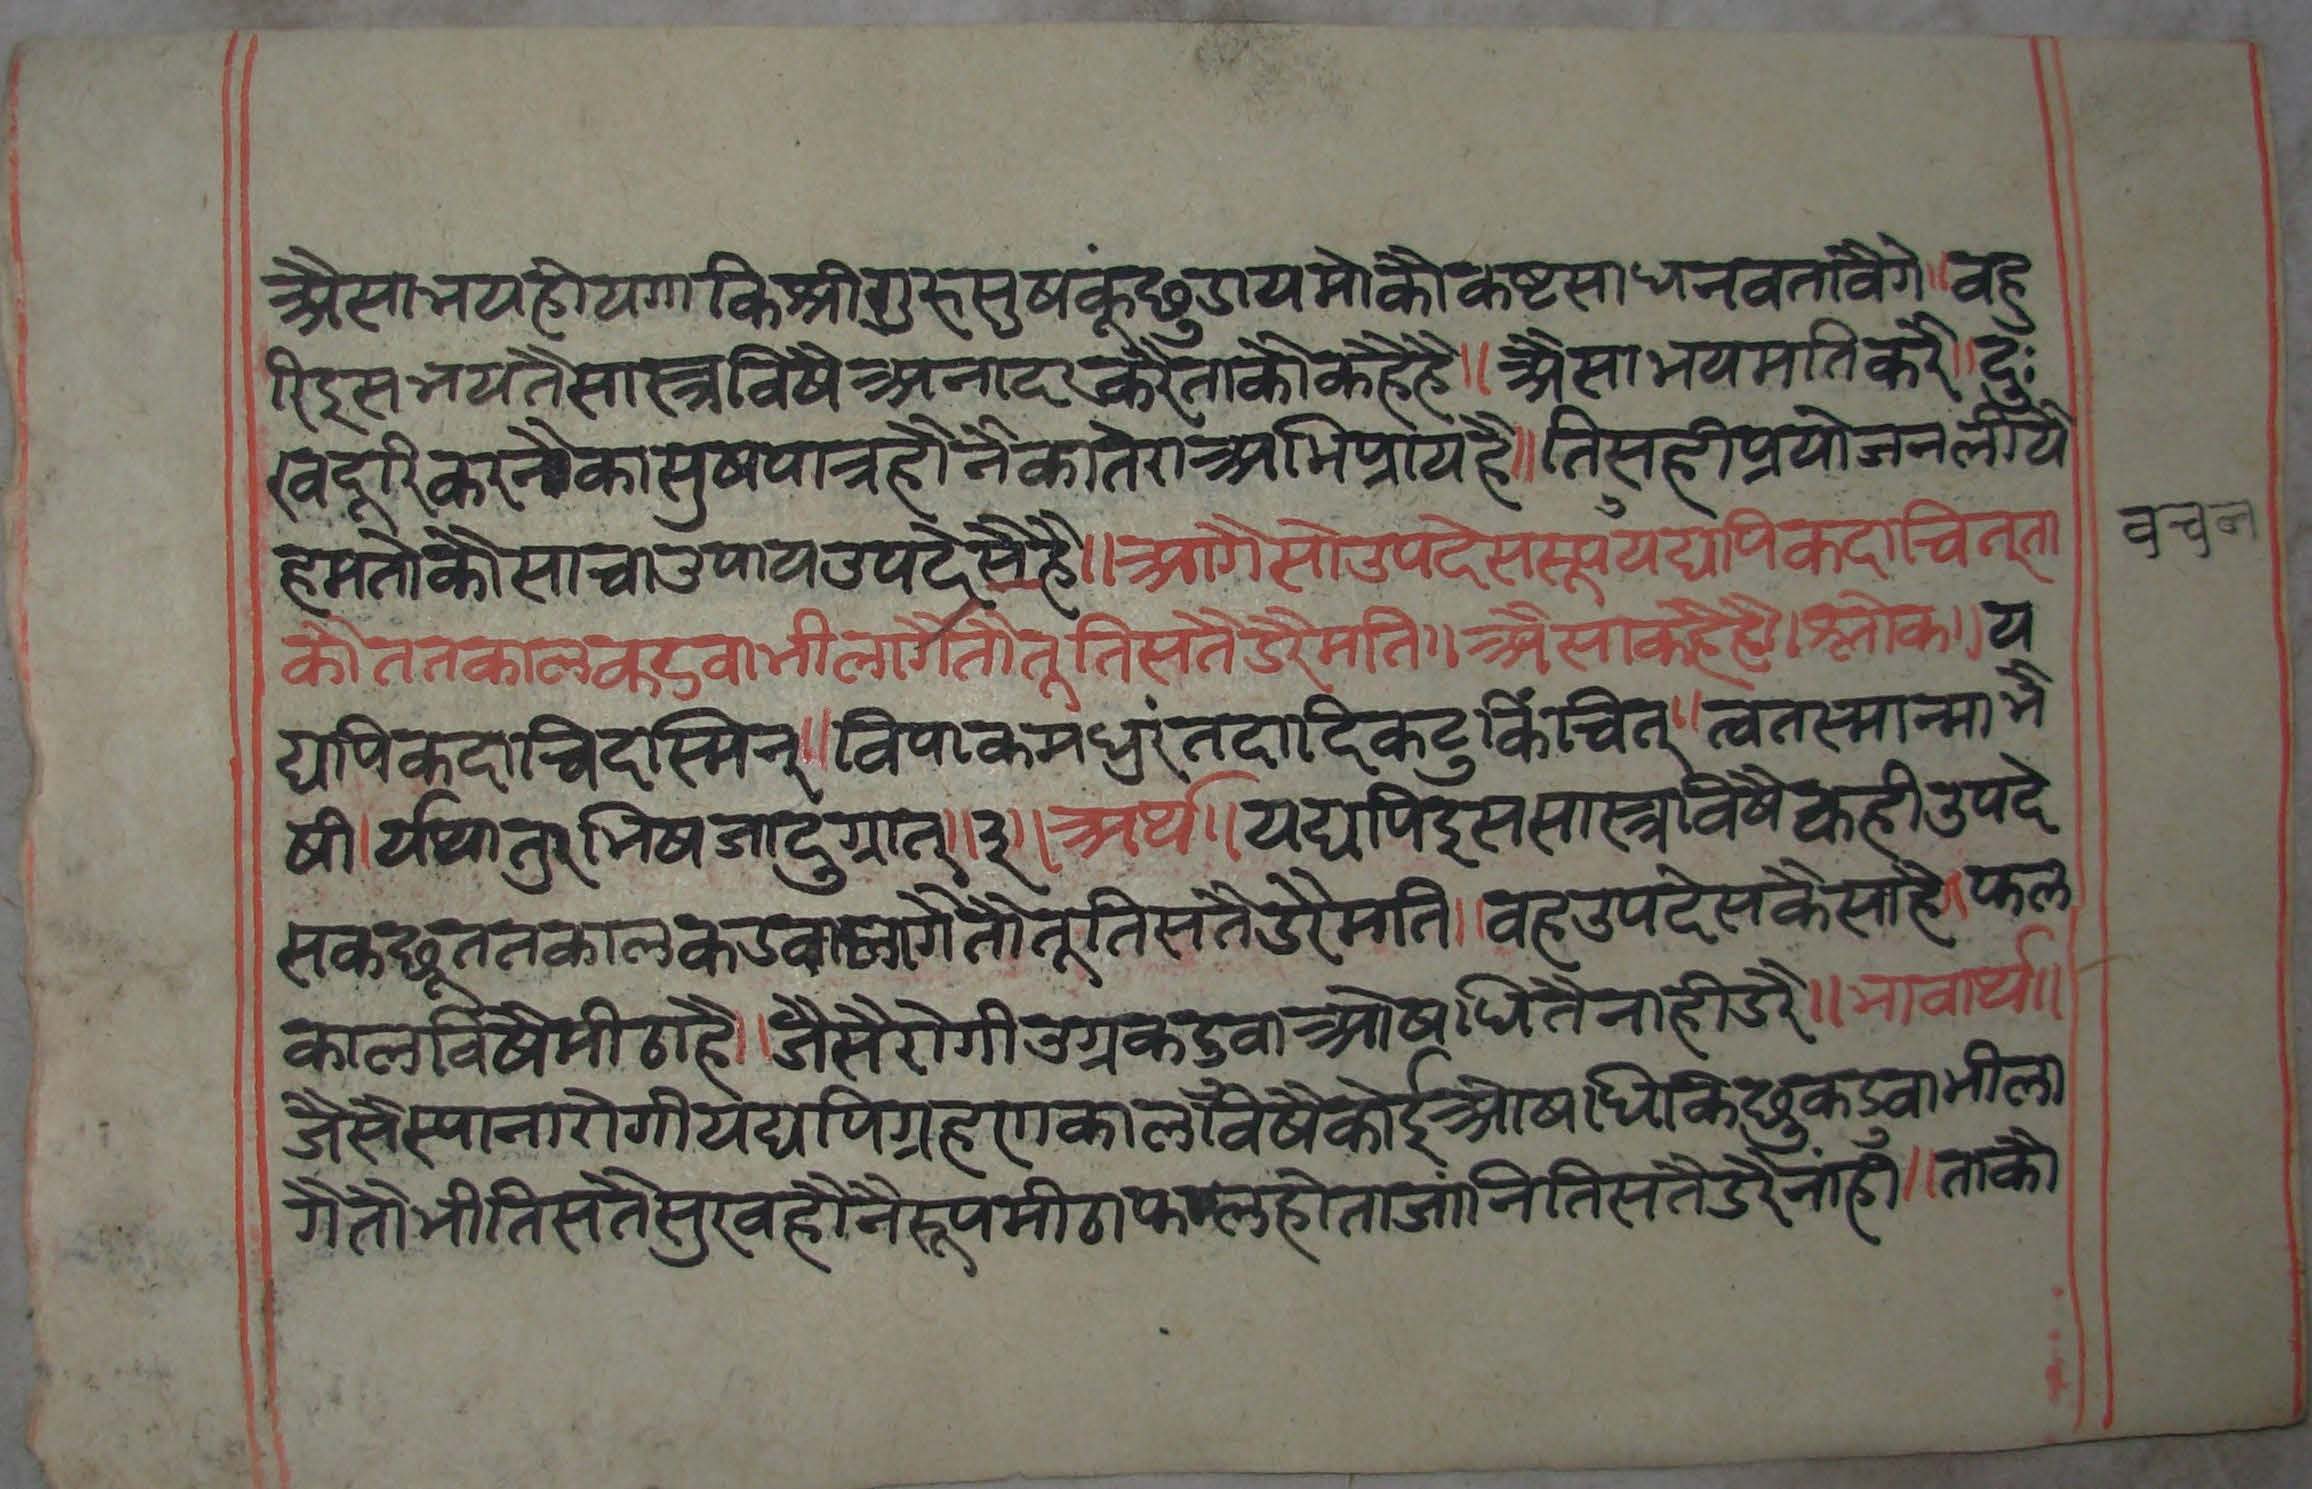 अैसाभयहोयगा कि श्रीगुरुसुषकूंछुडायमोकौकष्टसाधनवतावैगे॥वहु
रिइसभयतैसास्त्रविषैअनादरकरैताकौकहैहै॥अैसाभयमतिकरै॥दुः
खदूरिकरनैकासुषपात्रहौनैकातेराअभिप्रायहै॥तिसहीप्रयोजनलीयै
हमतोकौसाचाउपायउपदेसैहै॥आगैसोउपदेससूपयद्यपिकदाचित्ता
कौततकालकडवाभीलागैतौतूतिसतैडरैमति॥अैसाकहैहै॥श्लोक॥य
द्यपिकदाचिदस्मिन्॥विपाकमधुरंतदादिकटुकिंचित्॥त्वतस्मान्माभै
षी।र्यथातुरभिषजादुग्रात्॥३॥अर्थ॥यद्यपिइससास्त्रविषैकहीउपदे
सकछूततकालकडवालागैतौतूतिसतैडरैमति॥वहउपदेसकैसाहै॥फल
कालविषैमीठाहै॥जैसैरोगीउग्रकडवाओषधितैनाहीडरै॥भावार्थ॥
जैसैस्यानारोगीयद्यपिग्रहणकालविषैकोईओषधिकिछुकडुवाभीला
गैतौभीतिसतैसुखहौनैरूपमीठाफलहोताजांनितिसतैडरैनांही॥ताकौ
वचन